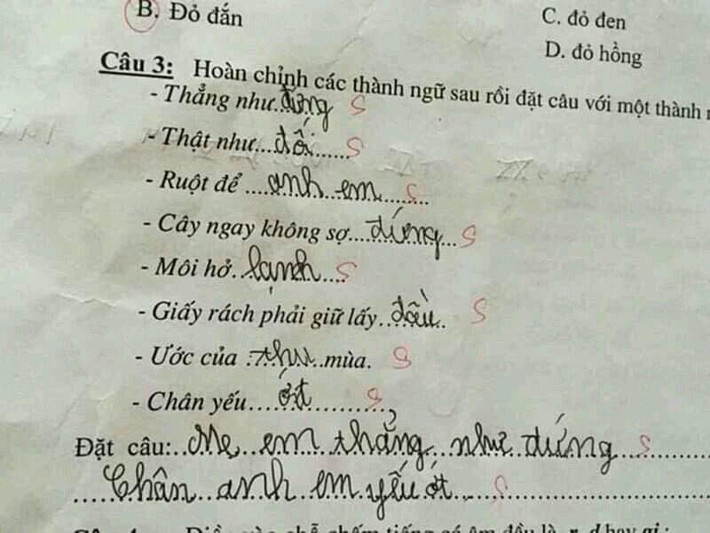 B. Đỏ đắn
C. đỏ đen
D. đỏ hồng
Câu 3: Hoàn chỉnh các thành ngữ sau rồi đặt câu với một thành
- Thẳng như...đứng S
- Thật như...đối...... S
- Ruột để ....anh...em...... S
- Cây ngay không sợ....đứng... S
- Môi hở..lạnh.... S
- Giấy rách phải giữ lấy..đầu.. S
- Ước của ..thu..mùa. S
- Chân yếu....ớt............ S
Đặt câu:..Mẹ...em...thẳng...như..đứng.... S
.....Chân..anh..em.yếu ớt..... S